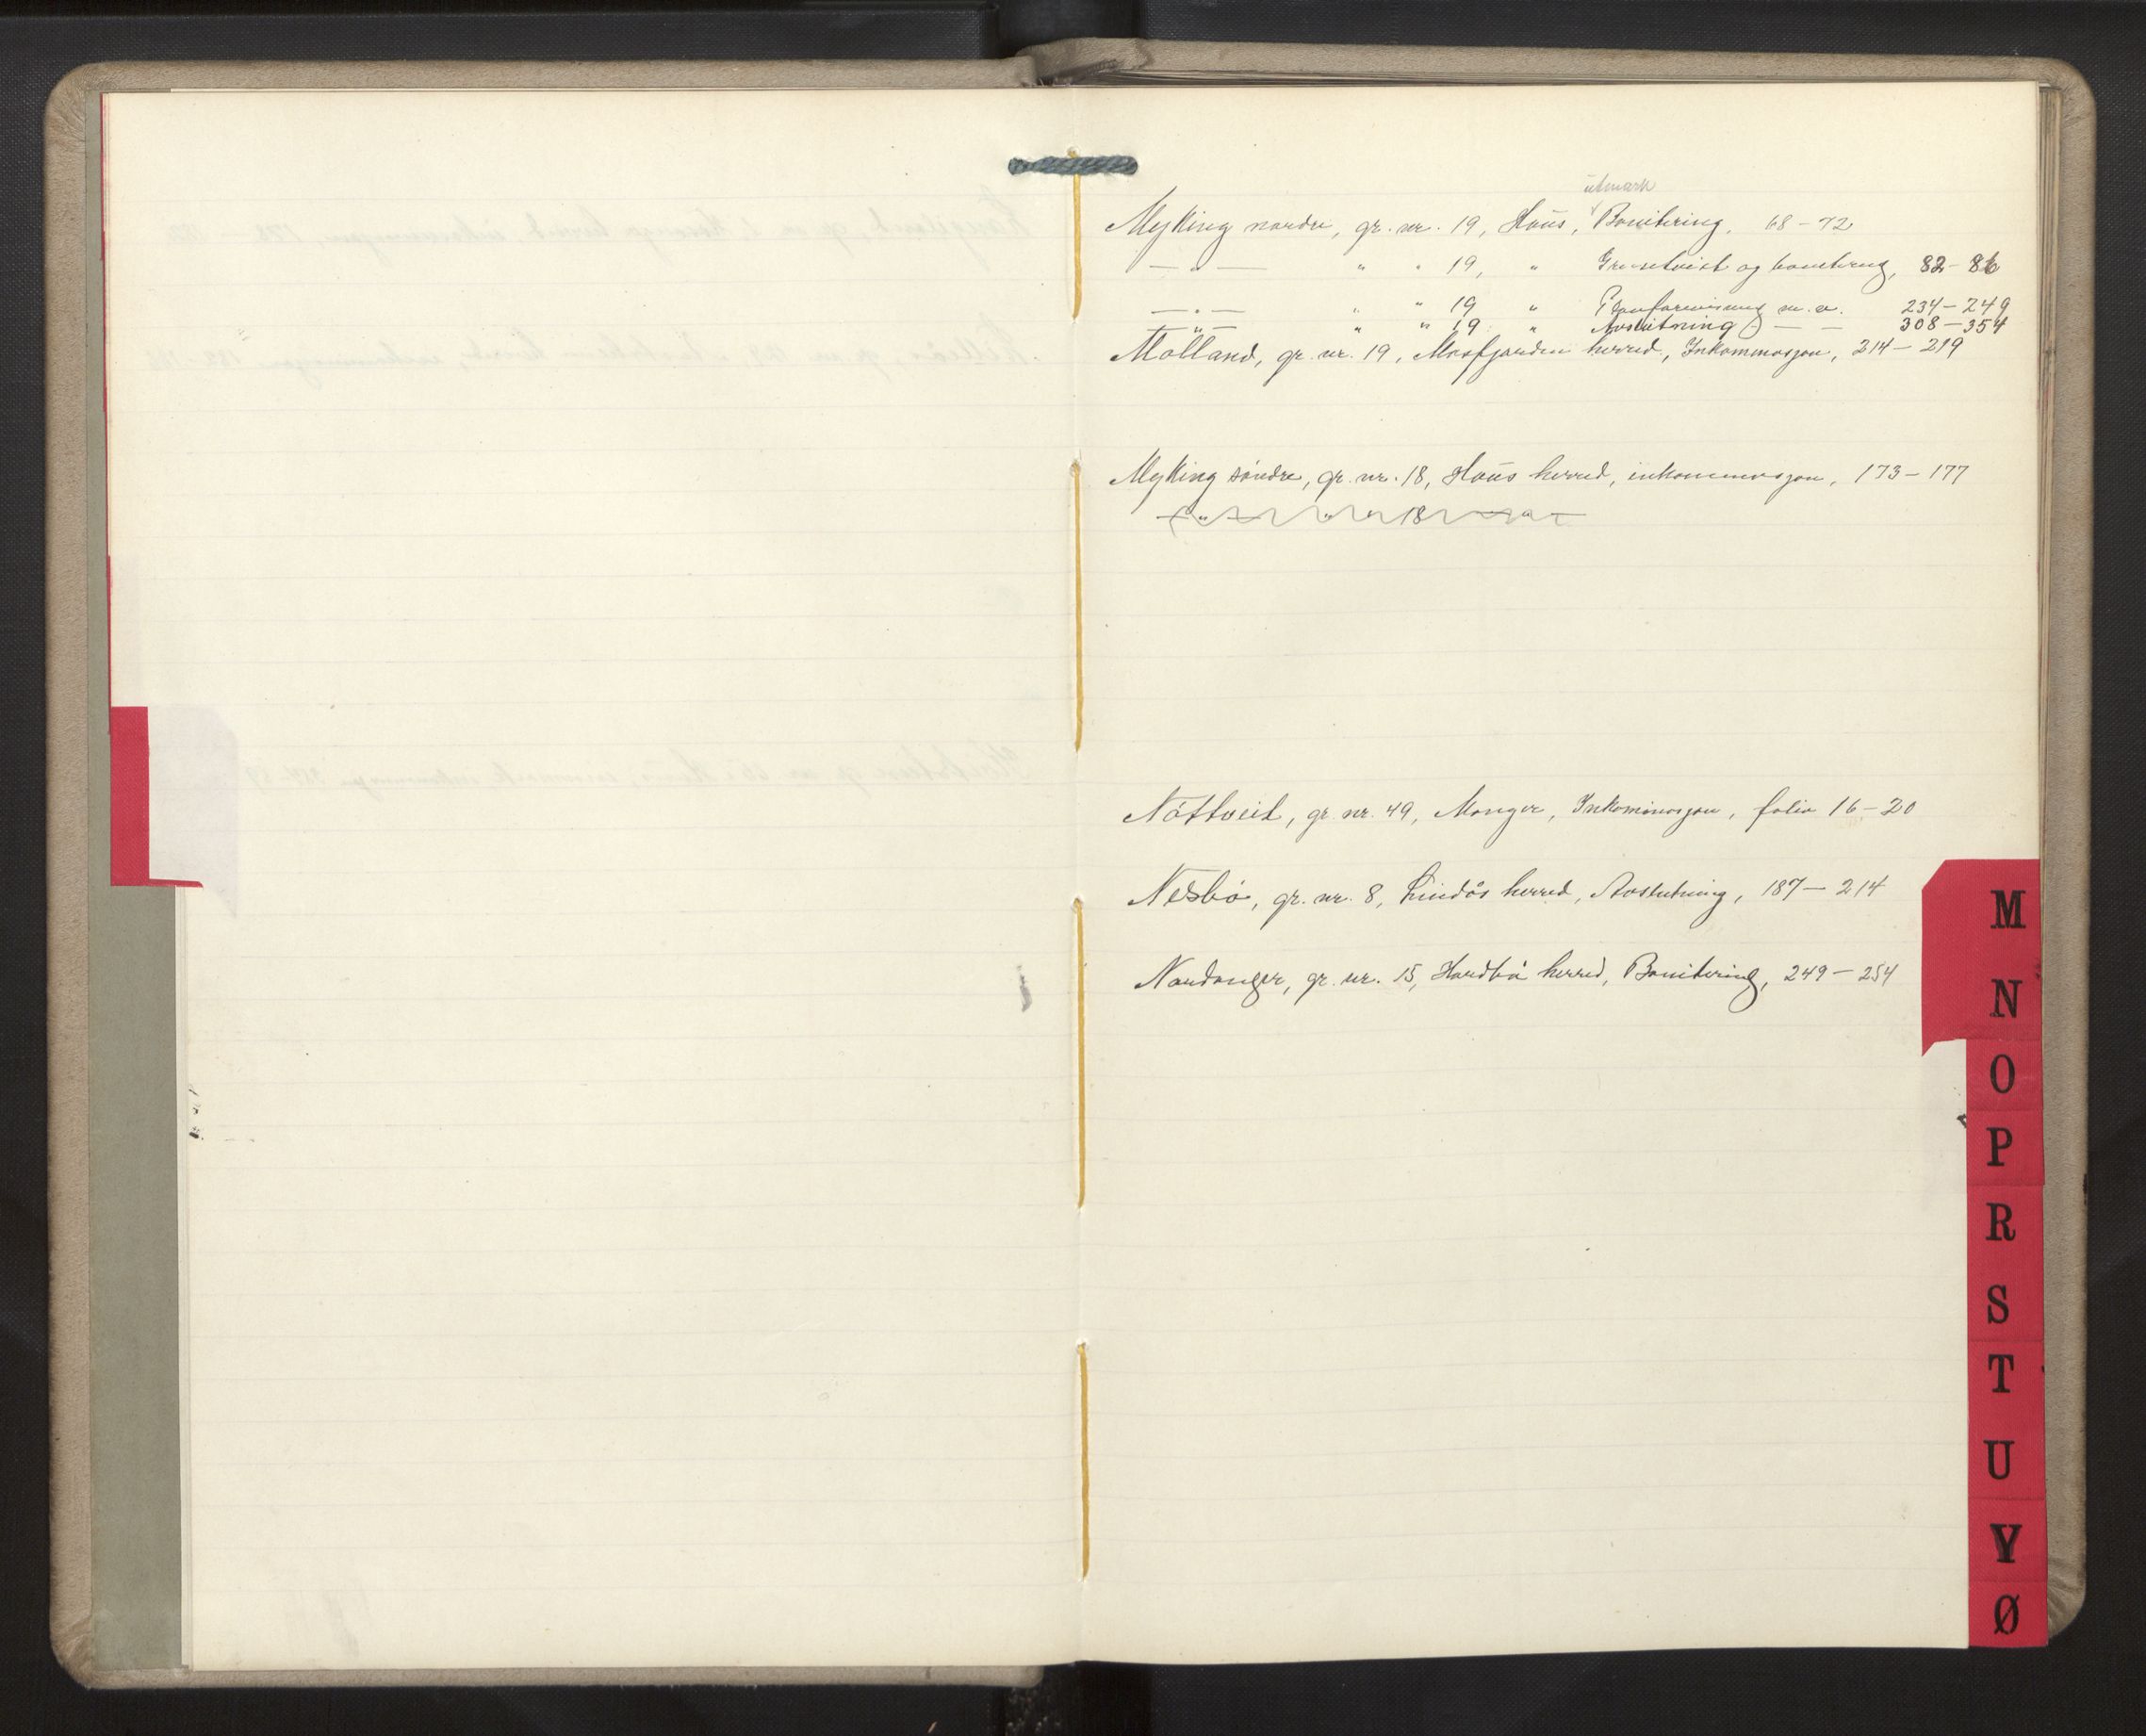 utmark
Myking nordre, gr. nr. 19, Haus, Bonitering, 68 – 72
— " — " " 19, " Grensetvist og bonitering, 82 – 86
— " — " " 19 " Planforevisning m.v. 234 – 249
— " — " " 19 " Avslutning — — 308 – 354
Molland, gr. nr. 19, Masfjorden herred, Inkaminasjon, 214 – 219
Myking söndre, gr. nr. 18, Haus herred, inkaminasjon, 173 – 177
— " — " " 18 — " —
Nöttveit, gr. nr. 49, Manger, Inkaminasjon, folio 16 – 20
Nesbö, gr. nr. 8, Lindås herred, Avslutning, 187 – 214
Nordanger, gr. nr. 15, Hordbö herred, Bonitering, 249 – 254
M
N
O
P
R
S
T
U
V
Ø